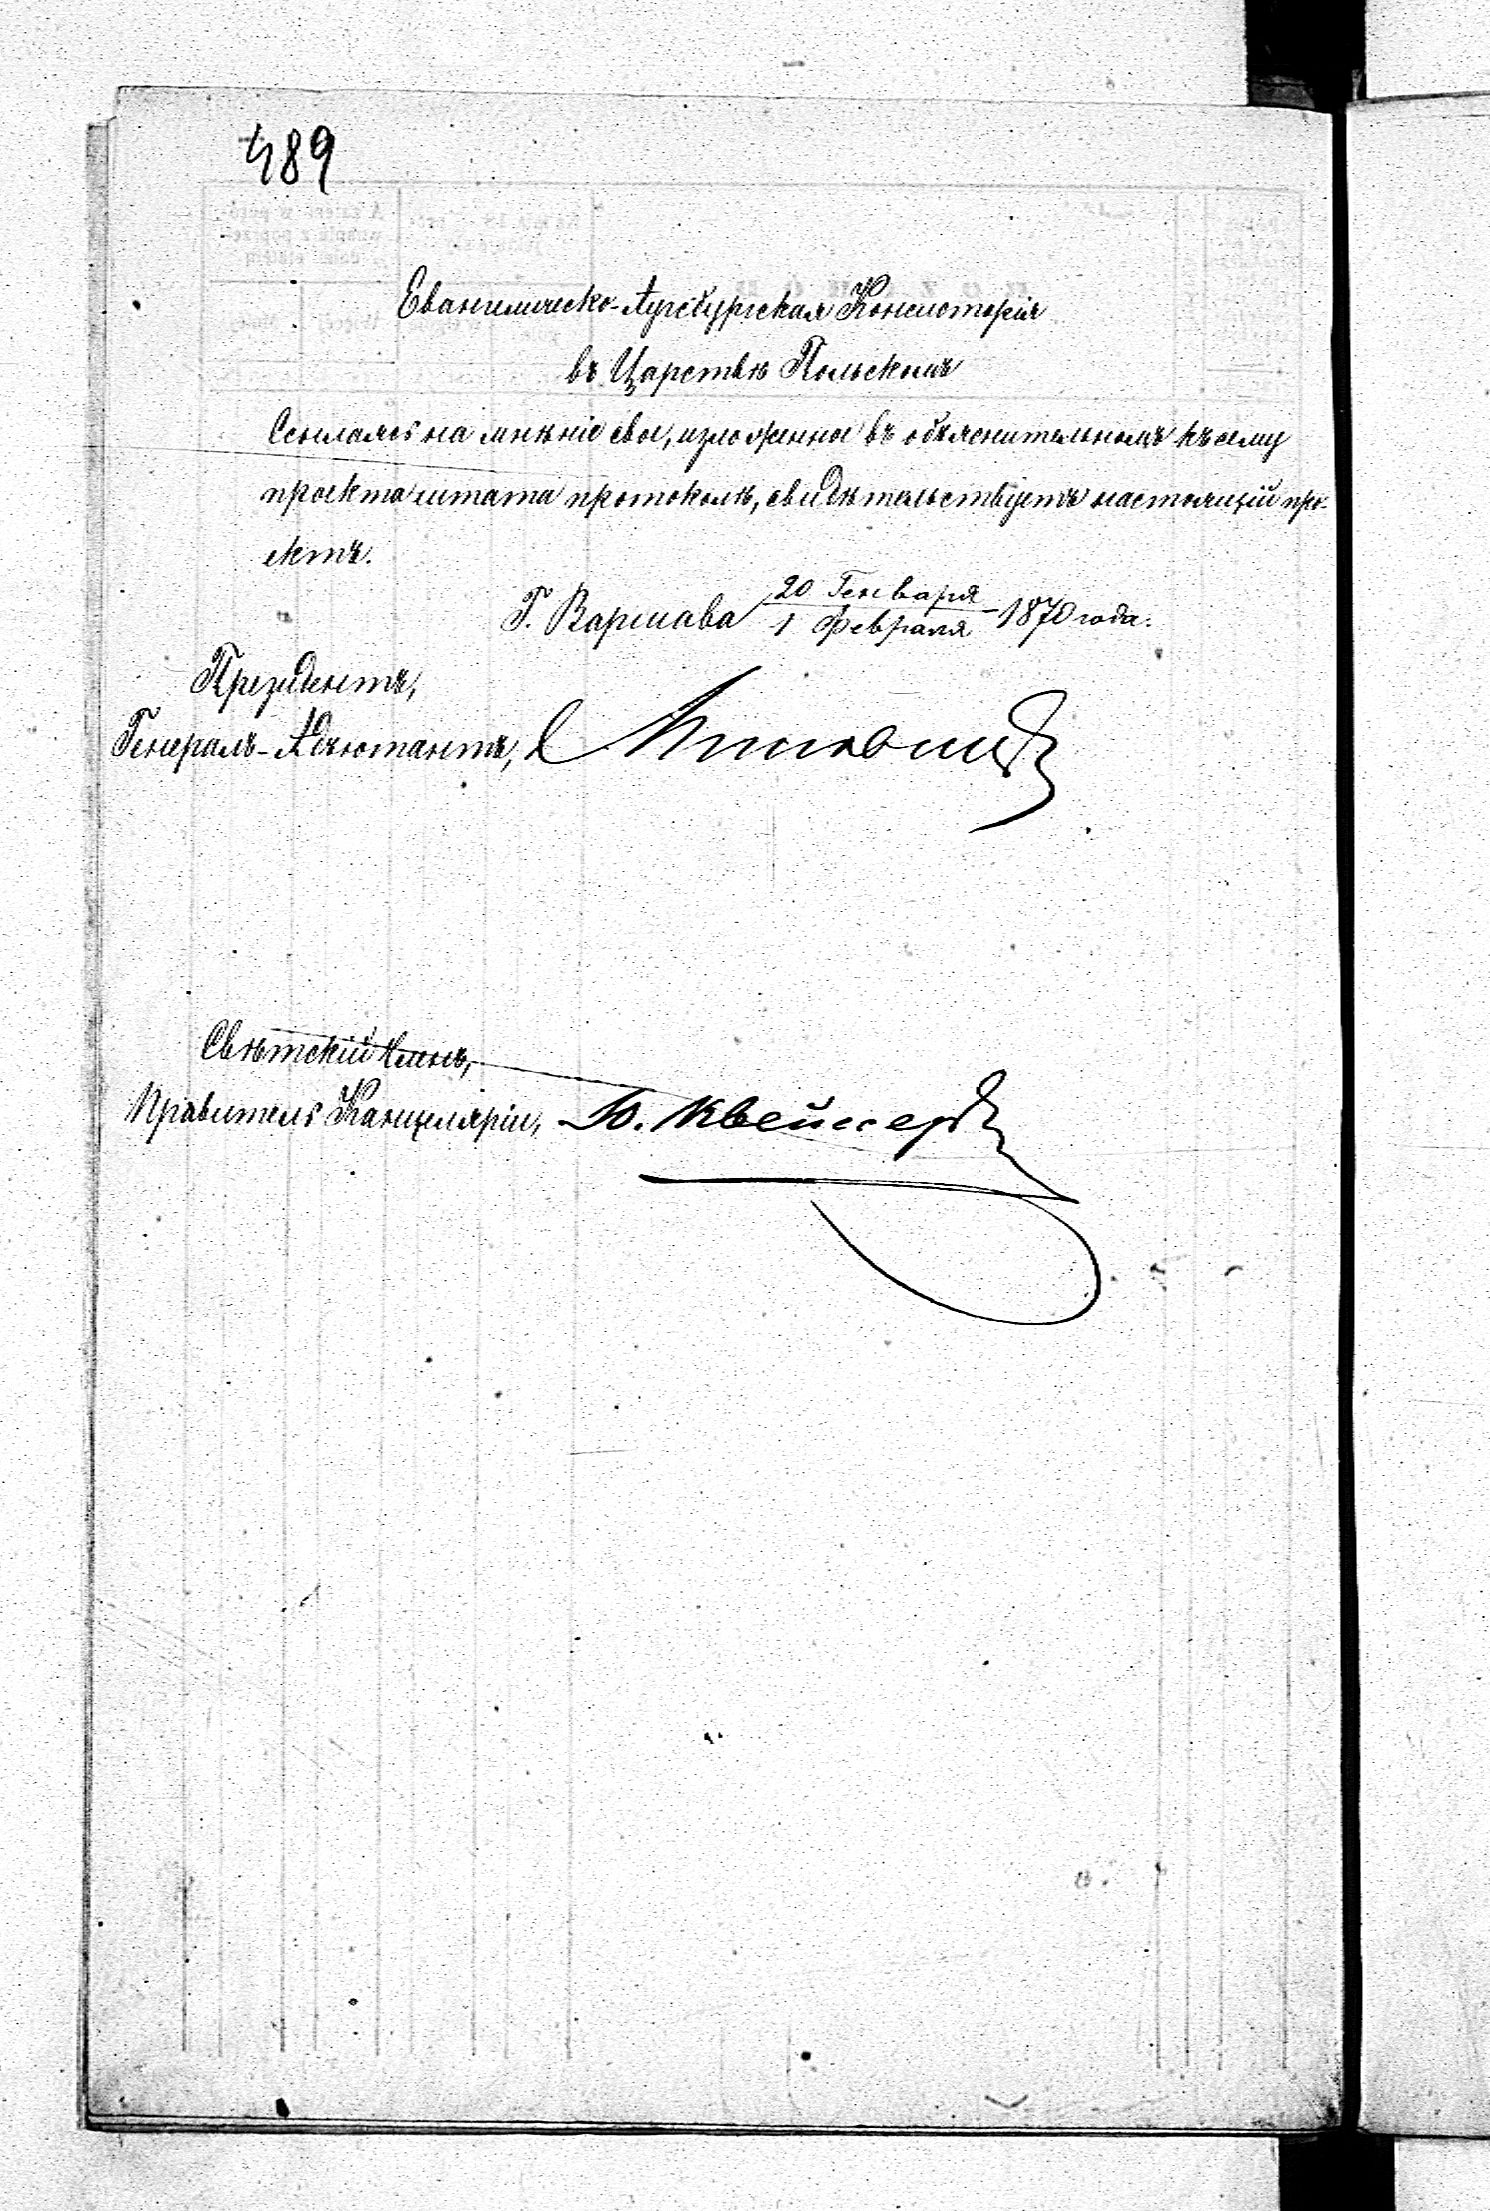 489
Евангелическо-Аугсбургская Консисторія
въ Царствѣ Польскомъ
Ссылаясь на мнѣніе свое, изложенное въ объяснительномъ къ сему
проекта штата протоколѣ, свидѣтельствуетъ настоящій про-
ектъ.
Г. Варшава 20 Генваря / 1 Февраля - 1870 года.
Президентъ,
Генералъ-Адъютантъ,
Свѣтскій Членъ,
Правитель Канцеляріи, Ю. Квейссеръ